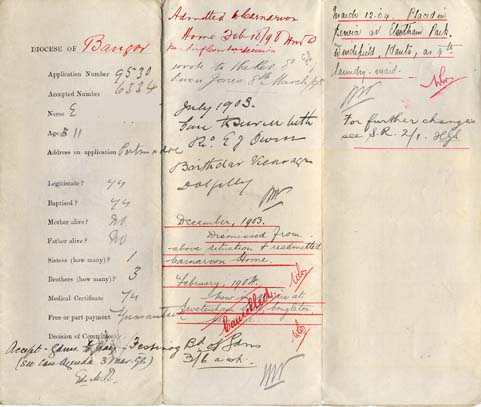 DIOCESE OF Bangor
Application Number 9530
Accepted Number 6554
Name E
Age 11
Address on application Portmadoc
Legitimate? Yes
Baptised? Yes
Mother alive? No
Father alive? No
Sisters (how many)? 1
Brothers (how many)? 3
Medical Certificate Yes
Free or part payment
Decision of Committee
Accept - Gdns to pay - Festiniog Bd of Gdns
(See Case Agenda 3 Mar. 98) 3/6 a wk.
Admitted to Carnarvon
Home Feb 10/98
pending Com: decision
wrote to the Rev. E
Owen Jones. 8th March/98
July 1903.
Gone to service with
Rev. E J Owen
Vicarage
Dolgelly
December, 1903.
Dismissed from
above situation & readmitted
Carnarvon Home.
February, 1904.
Now in service at
Congleton
Cancelled.
March 12. 04. Placed in
service at Park.
Hants, as 4th
laundry-maid.
For further changes
see S.R. 2/1.